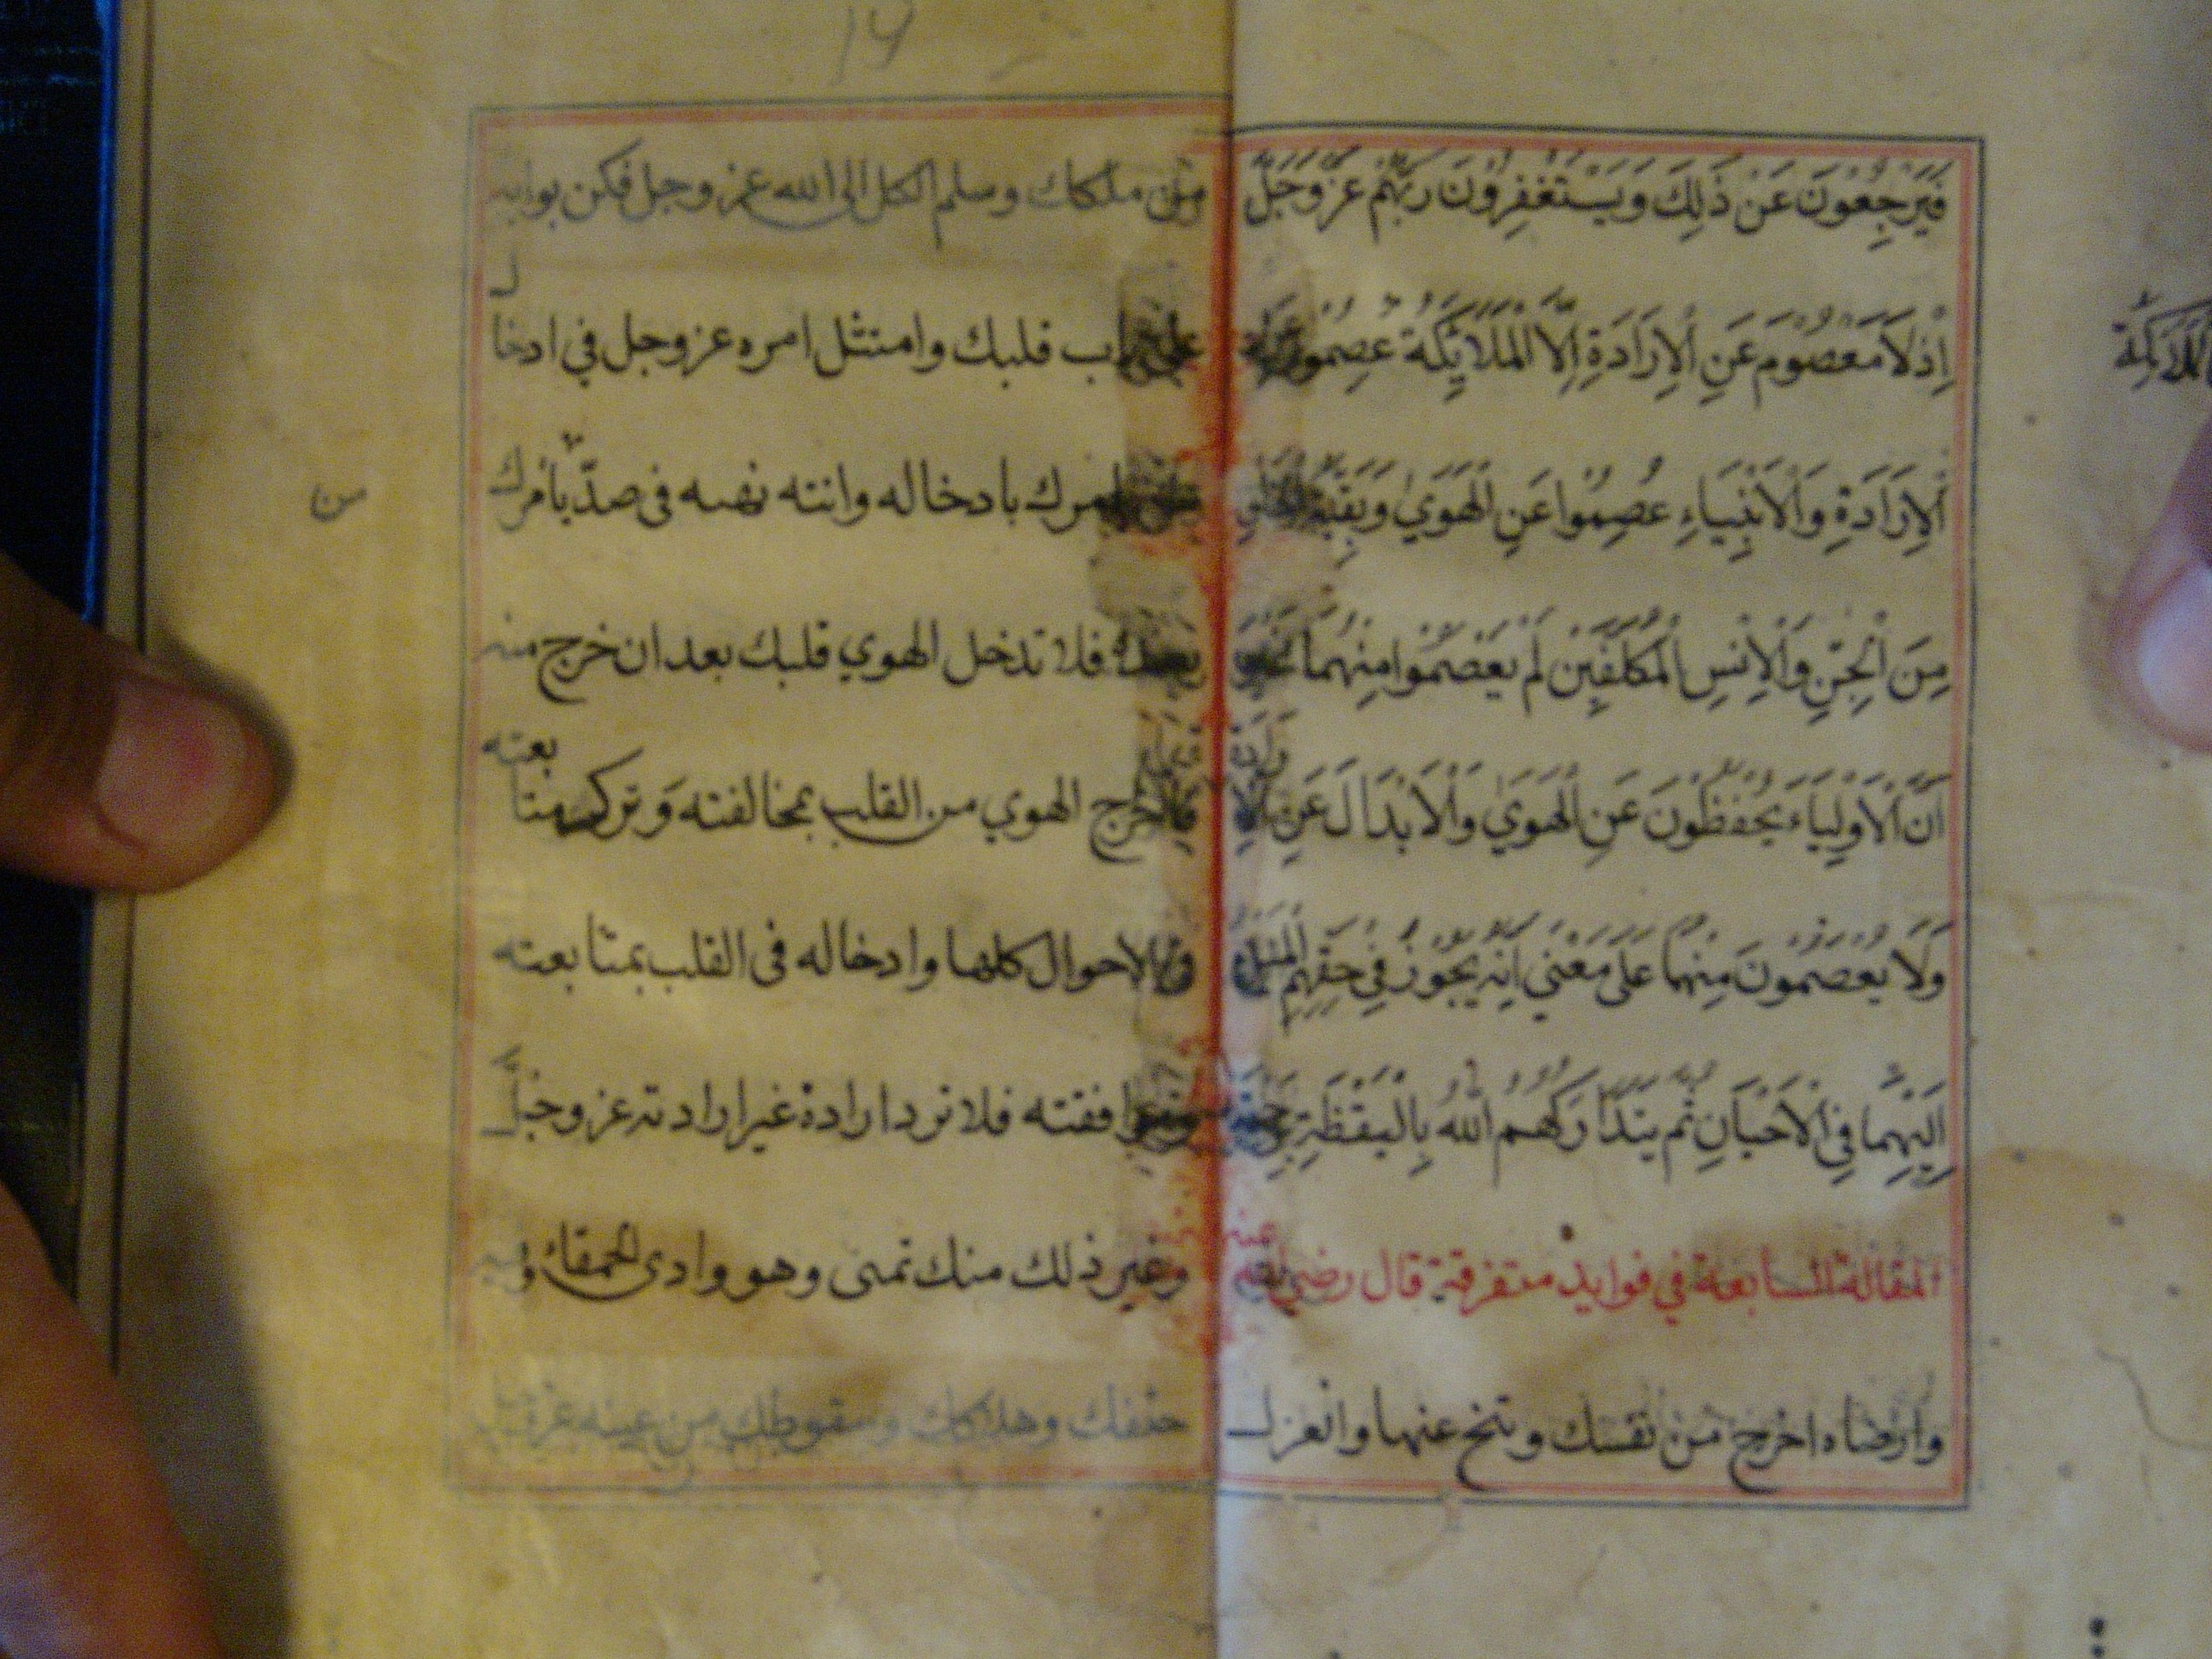 فَيَرْجِعُونَ عَنْ ذَلِكَ وَيَسْتَغْفِرُونَ رَبَّهُمْ عَزَّ وَجَلَّ
اِذْ لَا مَعْصُومَ عَنِ الْاِرَادَةِ اِلَّا الْمَلَائِكَةَ عُصِمُوا
الْاِرَادَةِ وَالْاَنْبِيَاءِ عُصِمُوا عَنِ الْهَوَي وَبَقِيَّةُ
مِنَ الْجِنِّ وَالْاِنْسِ الْمُكَلَّفِيْنَ لَمْ يُعْصَمُوا مِنْهُمَا
اَنَّ الْاَوْلِيَاءَ يُحْفَظُوْنَ عَنِ الْهَوَي وَالْاَبْدَالَ عَنِ
وَلَا يُعْصَمُونَ مِنْهُمَا عَلَى مَعْنَي اَنَّهُ يَجُوْزُ فِي حَقِّهِمُ الْمَيْلُ
اِلَيْهِمَا فِي الْاَحْيَانِ ثُمَّ يَتَدَارَكُهُمُ اللهُ بِالْيَقْظَةِ
المقالة السابعة في فوايد متفرقة قال رضي عنه
وارضاه اخرج من نفسك وتنح عنها وانعزل
الملائكة
14
من ملكك وسلم الكل الى الله عز وجل فكن بوابه
على باب قلبك وامتثل امره عز وجل في ادخال
يامرك بادخاله وانته نهيه فى صد يامرك
من
بصده فلا تدخل الهوي قلبك بعد ان خرج منه
فاخراج الهوي من القلب بمخالفته وترك متابعته
في الاحوال كلها وادخاله فى القلب بمتابعته
وموافقته فلا ترد ارادة غير ارادته عز وجل
وغير ذلك منك تمنى وهو وادى الحمقاء وفيه
حتفك وهلاكك وسقوطك من عينه عز